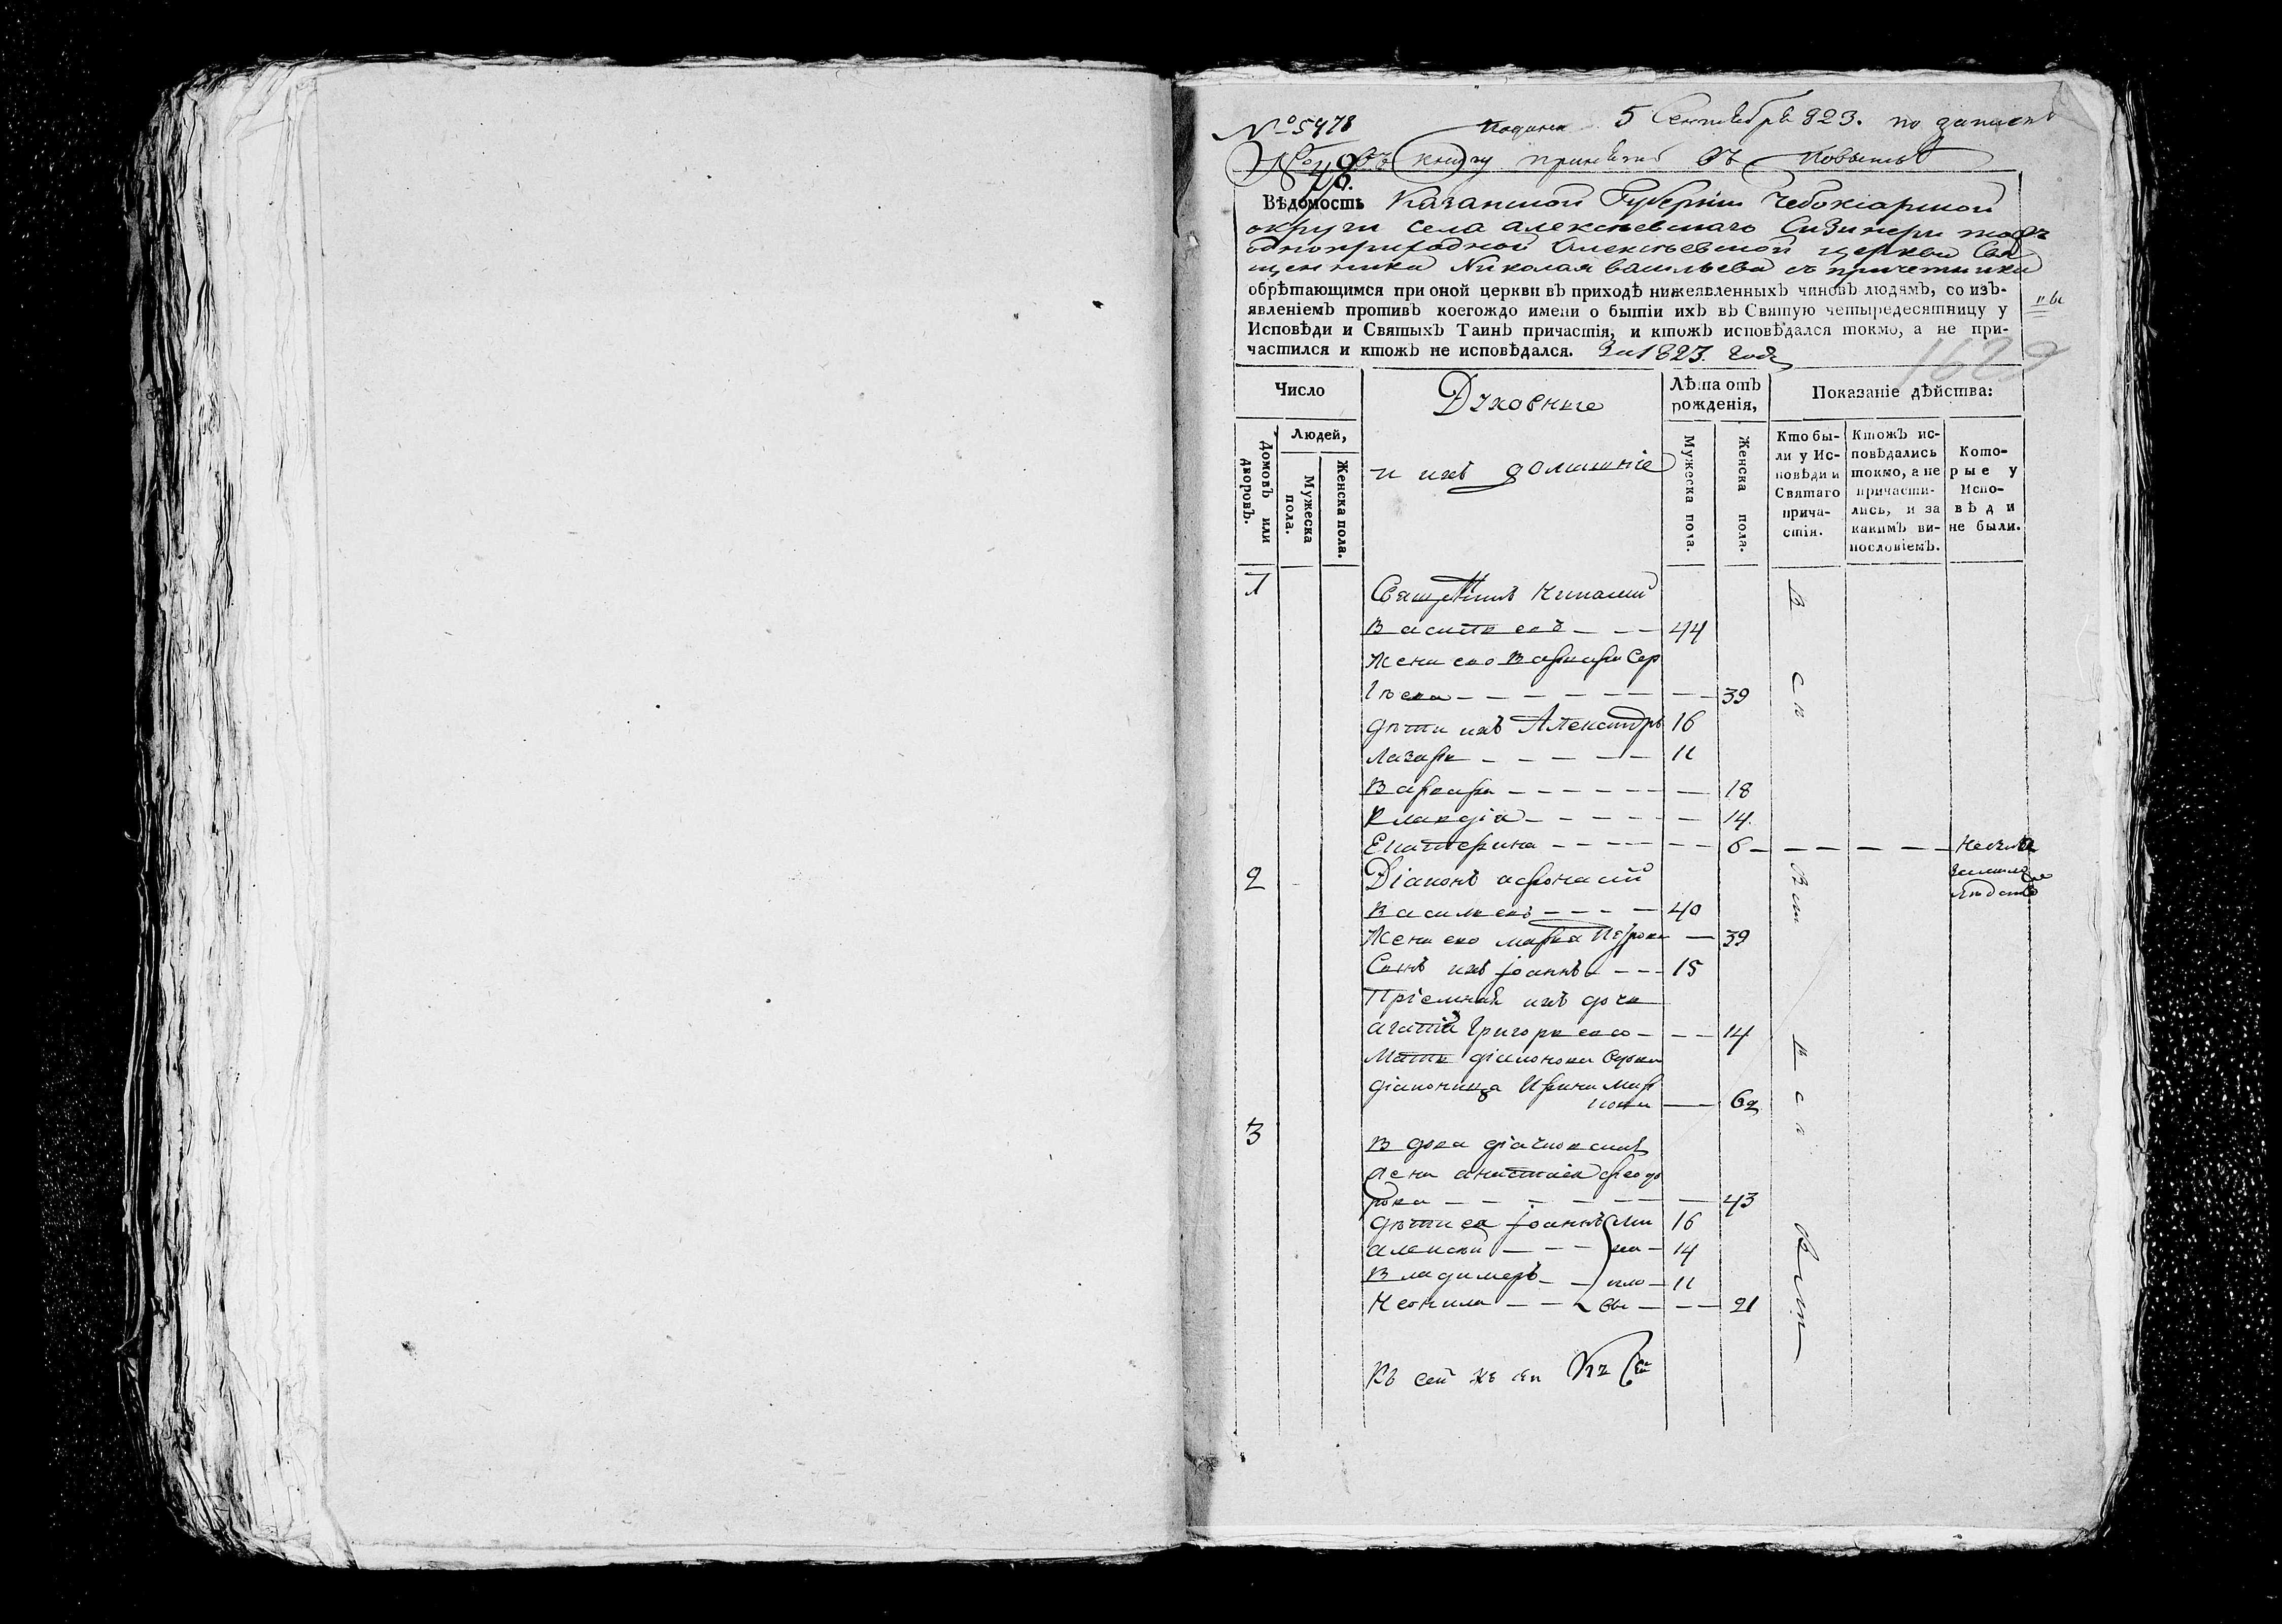 № 5478 Подана 5 Сентября 823. по записке
№ 48. въ книгу принять въ повытье
Вѣдомость Казанской Губерніи Чебоксарской
округи села алексѣевскаго Сизинери тожъ
одноприходной Алексѣевской церкви Свя
щенника Николая васильева съ причетники
обрѣтающимся при оной церкви въ приходѣ нижеявленныхъ чиновъ людямъ, со изъ-
явленіемъ противъ коегождо имени о бытіи ихъ въ Святую четыредесятницу у
Исповѣди и Святыхъ Таинъ причастія, и ктожъ исповѣдался токмо, а не при-
частился и ктожъ не исповѣдался. За 1823. годъ
1629
Число
Духовные
Лѣта отъ
рожденія,
Показаніе дѣйства:
Людей,
и ихъ домашніе
домовъ или
дворовъ.
Мужеска
пола.
Женска пола.
Мужеска пола.
Женска пола.
Кто бы-
ли у Ис-
повѣди и
Святаго
прича-
стія.
Ктожъ ис-
повѣдались
токмо, а не
причасти-
лись, и за
какимъ ви-
нословіемъ.
Кото-
рые у
Испо-
вѣди
не были.
1 Священникъ Николай
Васильевъ 44
Жена ево Варвара Сер
гѣева 39
дѣти ихъ Александръ 16
Лазарь 11
Варвара 18
Клавдія 14
Екатерина 6
2 Діаконъ афонасій
Васильевъ 40
Жена ево марфа Петрова 39
Сынъ ихъ іоаннъ 15
Пріемная ихъ дочь
агафія Григорьева 14
Мать діаконова вдова
діаконица Ирина Мир
нова 62
3 Вдова дьячковская
жена анастасія феодо
рова 43
дѣти ея іоаннъ 16
алексѣй 14
Владимеръ 11
Неонила 21
Къ сей